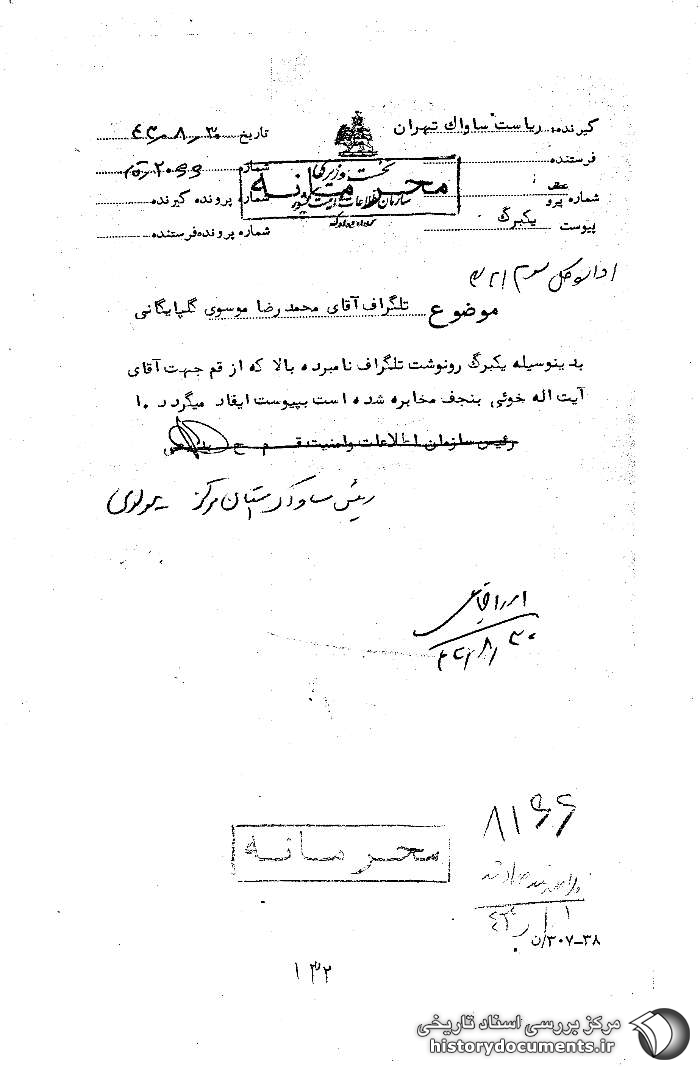 گیرنده: ریاست ساواک تهران
تاریخ ۴۳/۸/۳۰
فرستنده
شماره
نخست وزیری
محرمانه
سازمان اطلاعات و امنیت کشور
شماره پرونده گیرنده
شماره پیرو
پیوست یکبرگ
شماره پرونده فرستنده
موضوع تلگراف آقای محمدرضا موسوی گلپایگانی
بدینوسیله یکبرگ رونوشت تلگراف نامبرده بالا که از قم جهت آقای
آیت اله خوئی بنجف مخابره شده است بپیوست ایفاد میگردد .ا
رئیس سازمان اطلاعات و امنیت قم
رئیس ساواک استان مرکز مولوی
۴۳/۸/۳۰
۸۱۶۶
محرمانه
۳۸-۳۰۷/ن
۱۳۲
مرکز بررسی اسناد تاریخی
historydocuments.ir